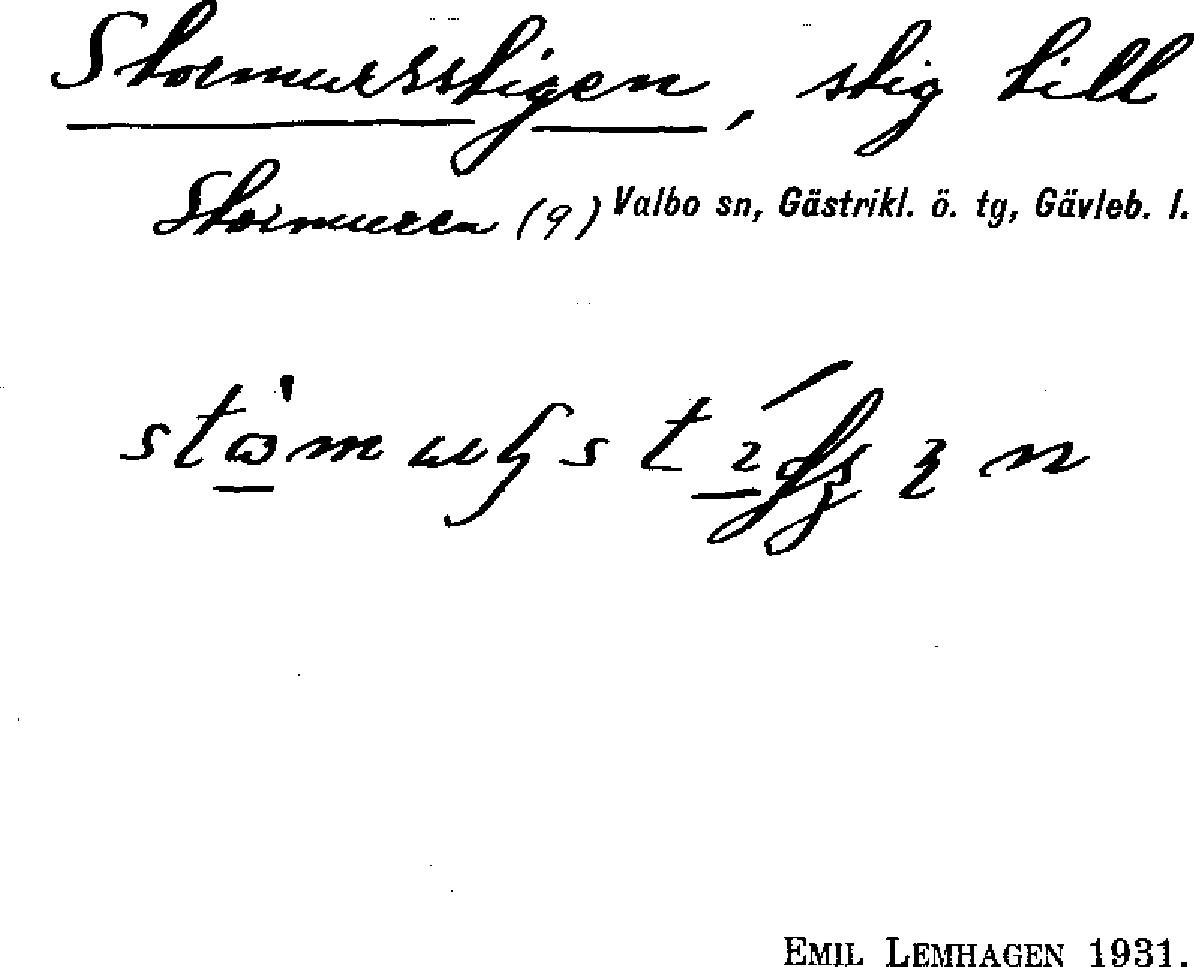 Stormursstigen, stig till
Stormuren (9) Valbo sn, Gästrikl. ö. tg, Gävleb. l.
EMIL LEMHAGEN 1931.